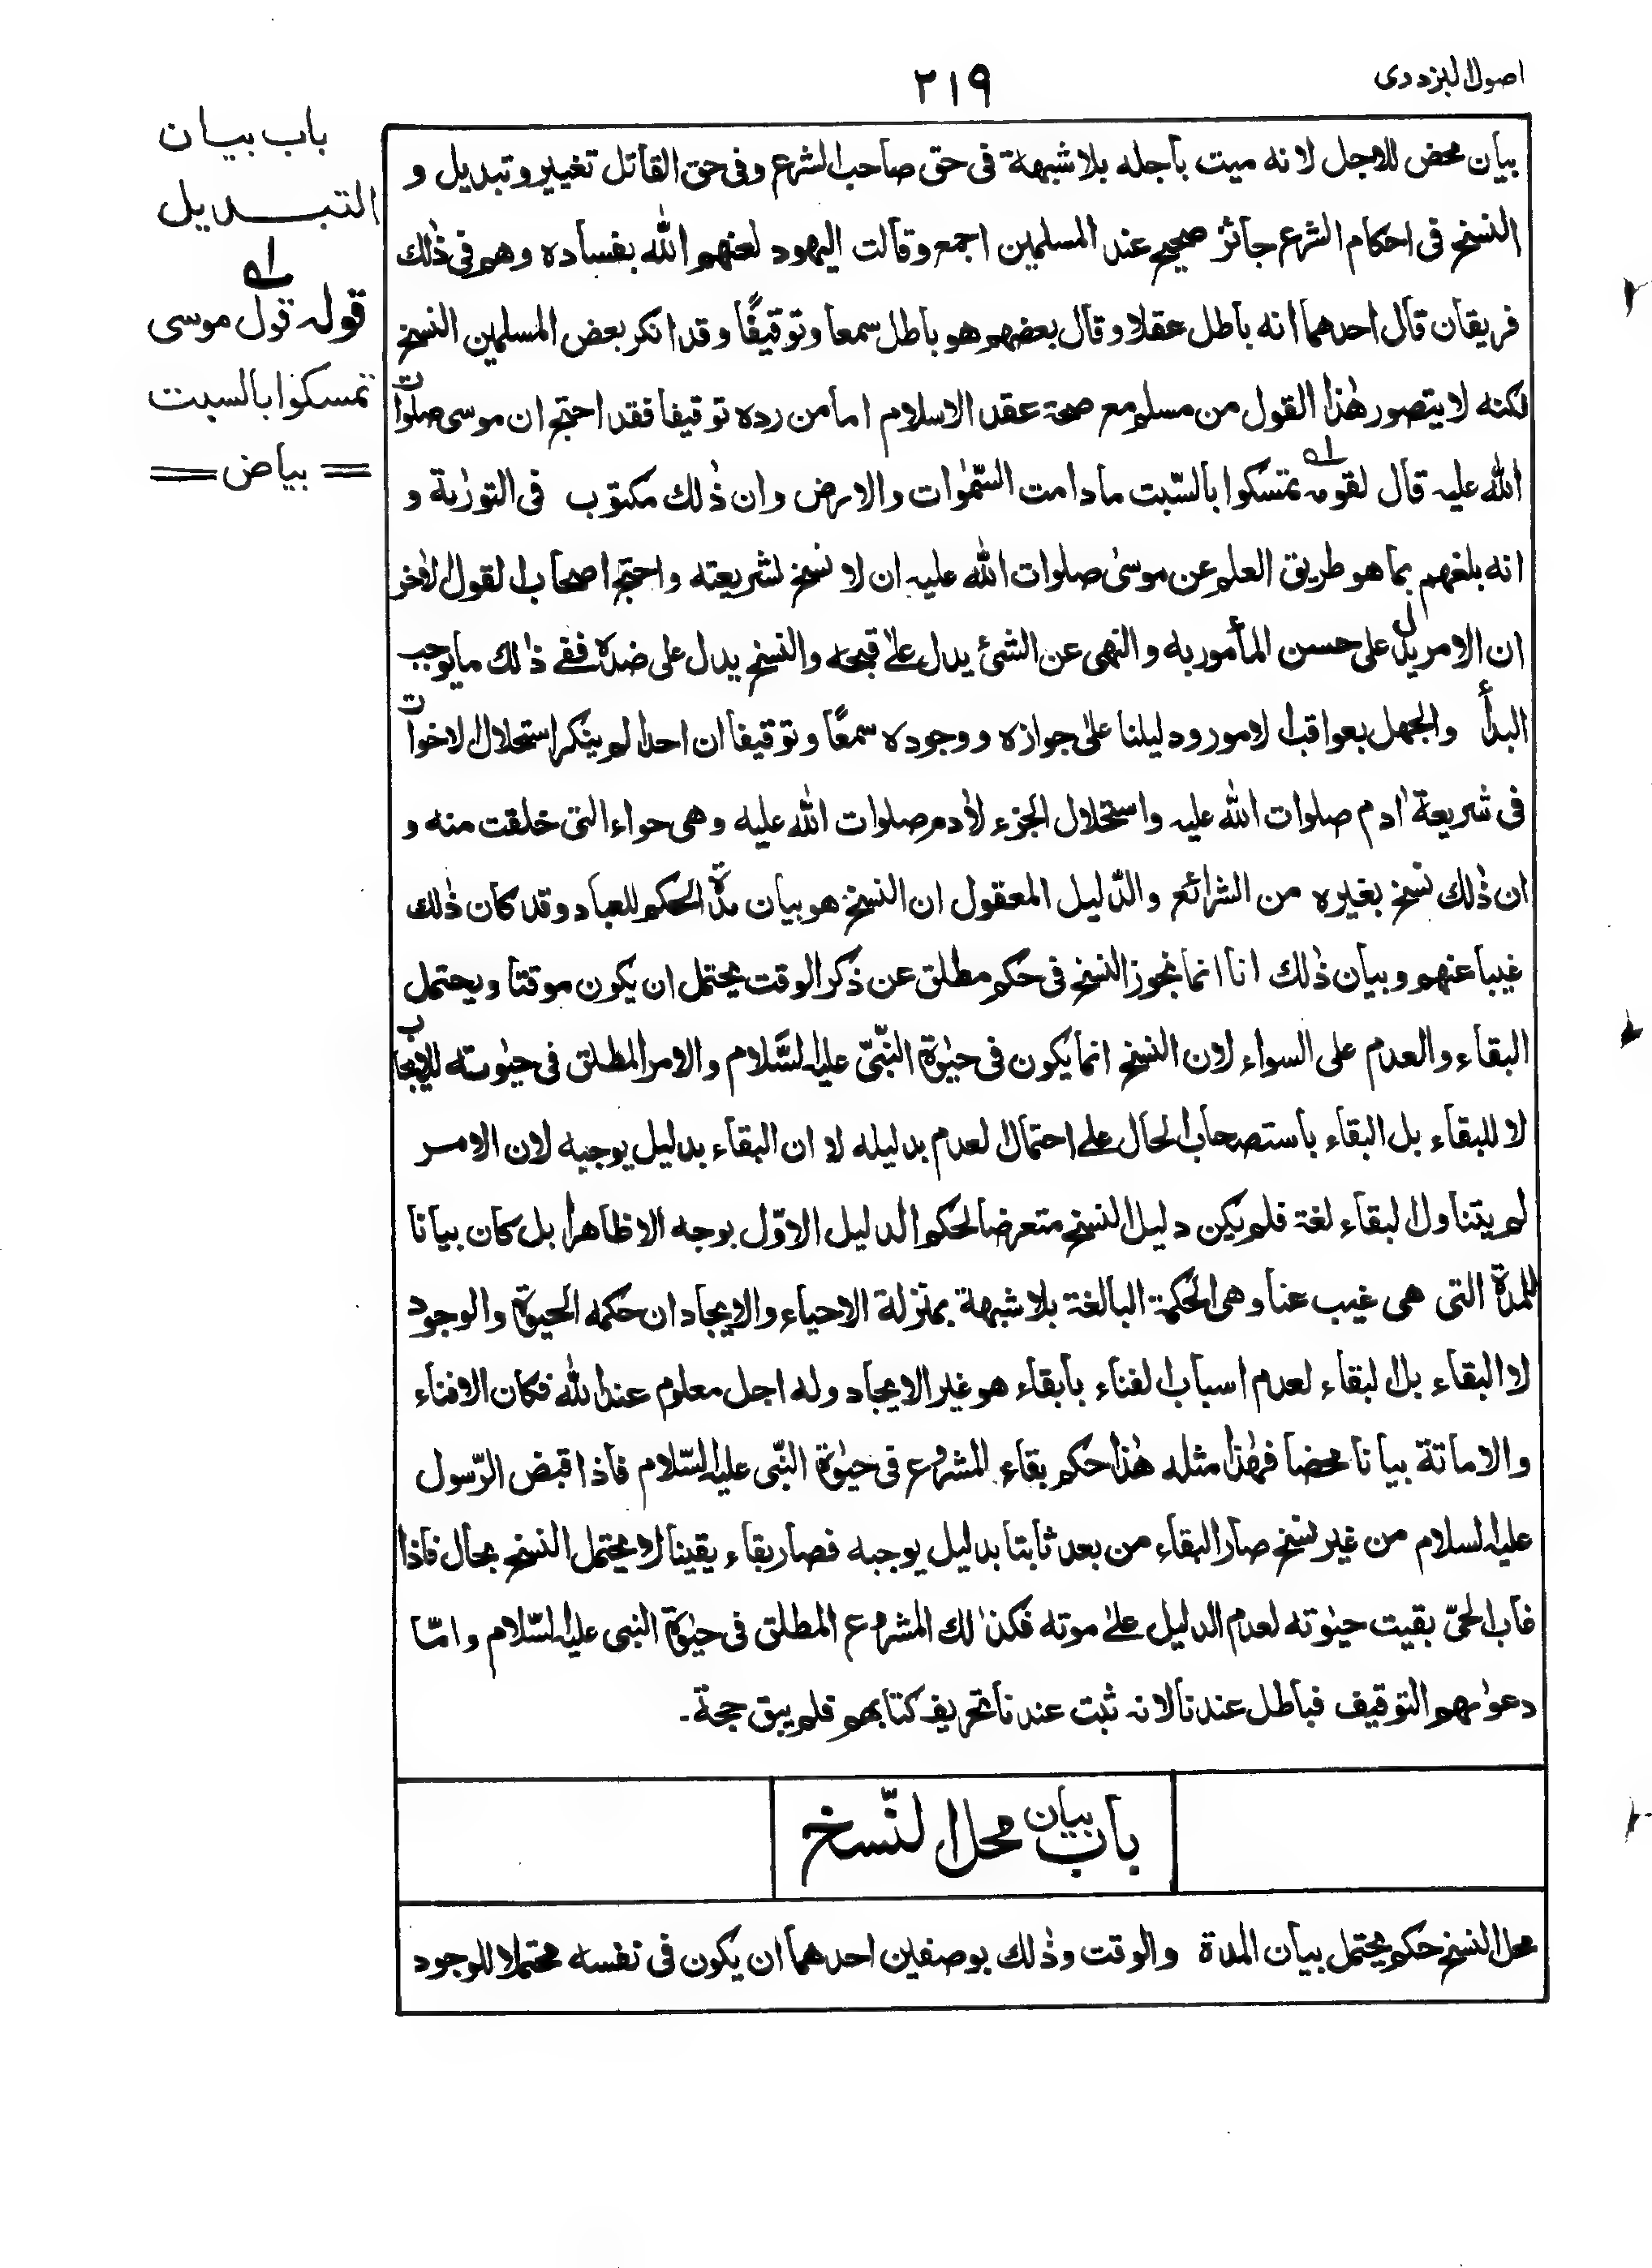 اصول البزدوى
٢١٩
باب بيان
التبديل
له
قوله قول موسى
تمسكوا بالسبت
= بياض =
بيان محض للاجل لانه ميت باجله بلا شبهة فى حق صاحب الشرع وفى حق القاتل تغيير وتبديل و
النسخ فى احكام الشرع جائز صحيح عند المسلمين اجمع وقالت اليهود لعنهم الله بفساده وهم فى ذٰلك
فريقان قال احدهما انه باطل عقلا وقال بعضهم هو باطل سمعا وتوقيفًا وقد انكر بعض المسلمين النسخ
لكنه لا يتصور هٰذا القول من مسلم مع صحة عقد الاسلام اما من رده توقيفا فقد احتج ان موسى صلوات
الله عليه قال لقومه تمسّكوا بالسّبت مادامت السّمٰوات والارض وان ذٰلك مكتوب فى التورٰية و
انه بلغهم بما هو طريق العلم عن موسىٰ صلوات الله عليه ان لا نسخ لشريعته واحتج اصحاب القول الاٰخر
ان الامر يدل على حسن المأمور به والنهى عن الشئ يدل علىٰ قبحه والنسخ يدل على ضده ففى ذالك ما يوجب
البدأ والجهل بعواقب الامور ودليلنا علىٰ جوازه ووجوده سمعًا وتوقيفا ان احدا لم ينكر استحلال الاخوات
فى شريعة اٰدم صلوات الله عليه واستحلال الجزء لاٰدم صلوات الله عليه وهى حواء التى خلقت منه و
ان ذٰلك نسخ بغيره من الشرائع والدّليل المعقول ان النسخ هو بيان مدّة الحكم للعباد وقد كان ذٰلك
غيبا عنهم وبيان ذٰلك انا انما نجوز النسخ فى حكم مطلق عن ذكر الوقت يحتمل ان يكون موقتا ويحتمل
البقاء والعدم على السواء لان النسخ انما يكون فى حيٰوة النبّىّ عليه السَّلام والامر المطلق فى حيٰوته للايجاب
لا للبقاء بل البقاء باستصحاب الحال على احتمال العدم بدليله لا ان البقاء بدليل يوجبه لان الامر
لم يتناول البقاء لغة فلم يكن دليل النسخ متعرضا لحكم الدليل الاوّل بوجه الا ظاهرا بل كان بيانا
للمدة التى هى غيب عنا وهى الحكمة البالغة بلا شبهة بمنزلة الاحياء والايجاد ان حكمه الحيٰوة والوجود
لا البقاء بل البقاء لعدم اسباب الفناء بابقاء هو غير الايجاد وله اجل معلوم عند الله فكان الافناء
والاماتة بيانا محضا فهٰذا مثله هٰذا حكم بقاء المشروع فى حيٰوة النّبى عليه السّلام فاذا قبض الرّسول
عليه السلام من غير نسخ صار البقاء من بعد ثابتا بدليل يوجبه فصار بقاء يقينا لا يحتمل النسخ بحال فاذا
غاب الحىّ بقيت حيٰوته لعدم الدليل علىٰ موته فكذٰلك المشروع المطلق فى حيٰوة النبى عليه السّلام وامّا
دعوٰىهم التوقيف فباطل عندنا لانه ثبت عندنا تحريف كتابهم فلم يبق حجة۔
باب بيان محل النّسخ
محل النسخ حكم يحتمل بيان المدة والوقت وذٰلك بوصفين احدهما ان يكون فى نفسه محتملا للوجود